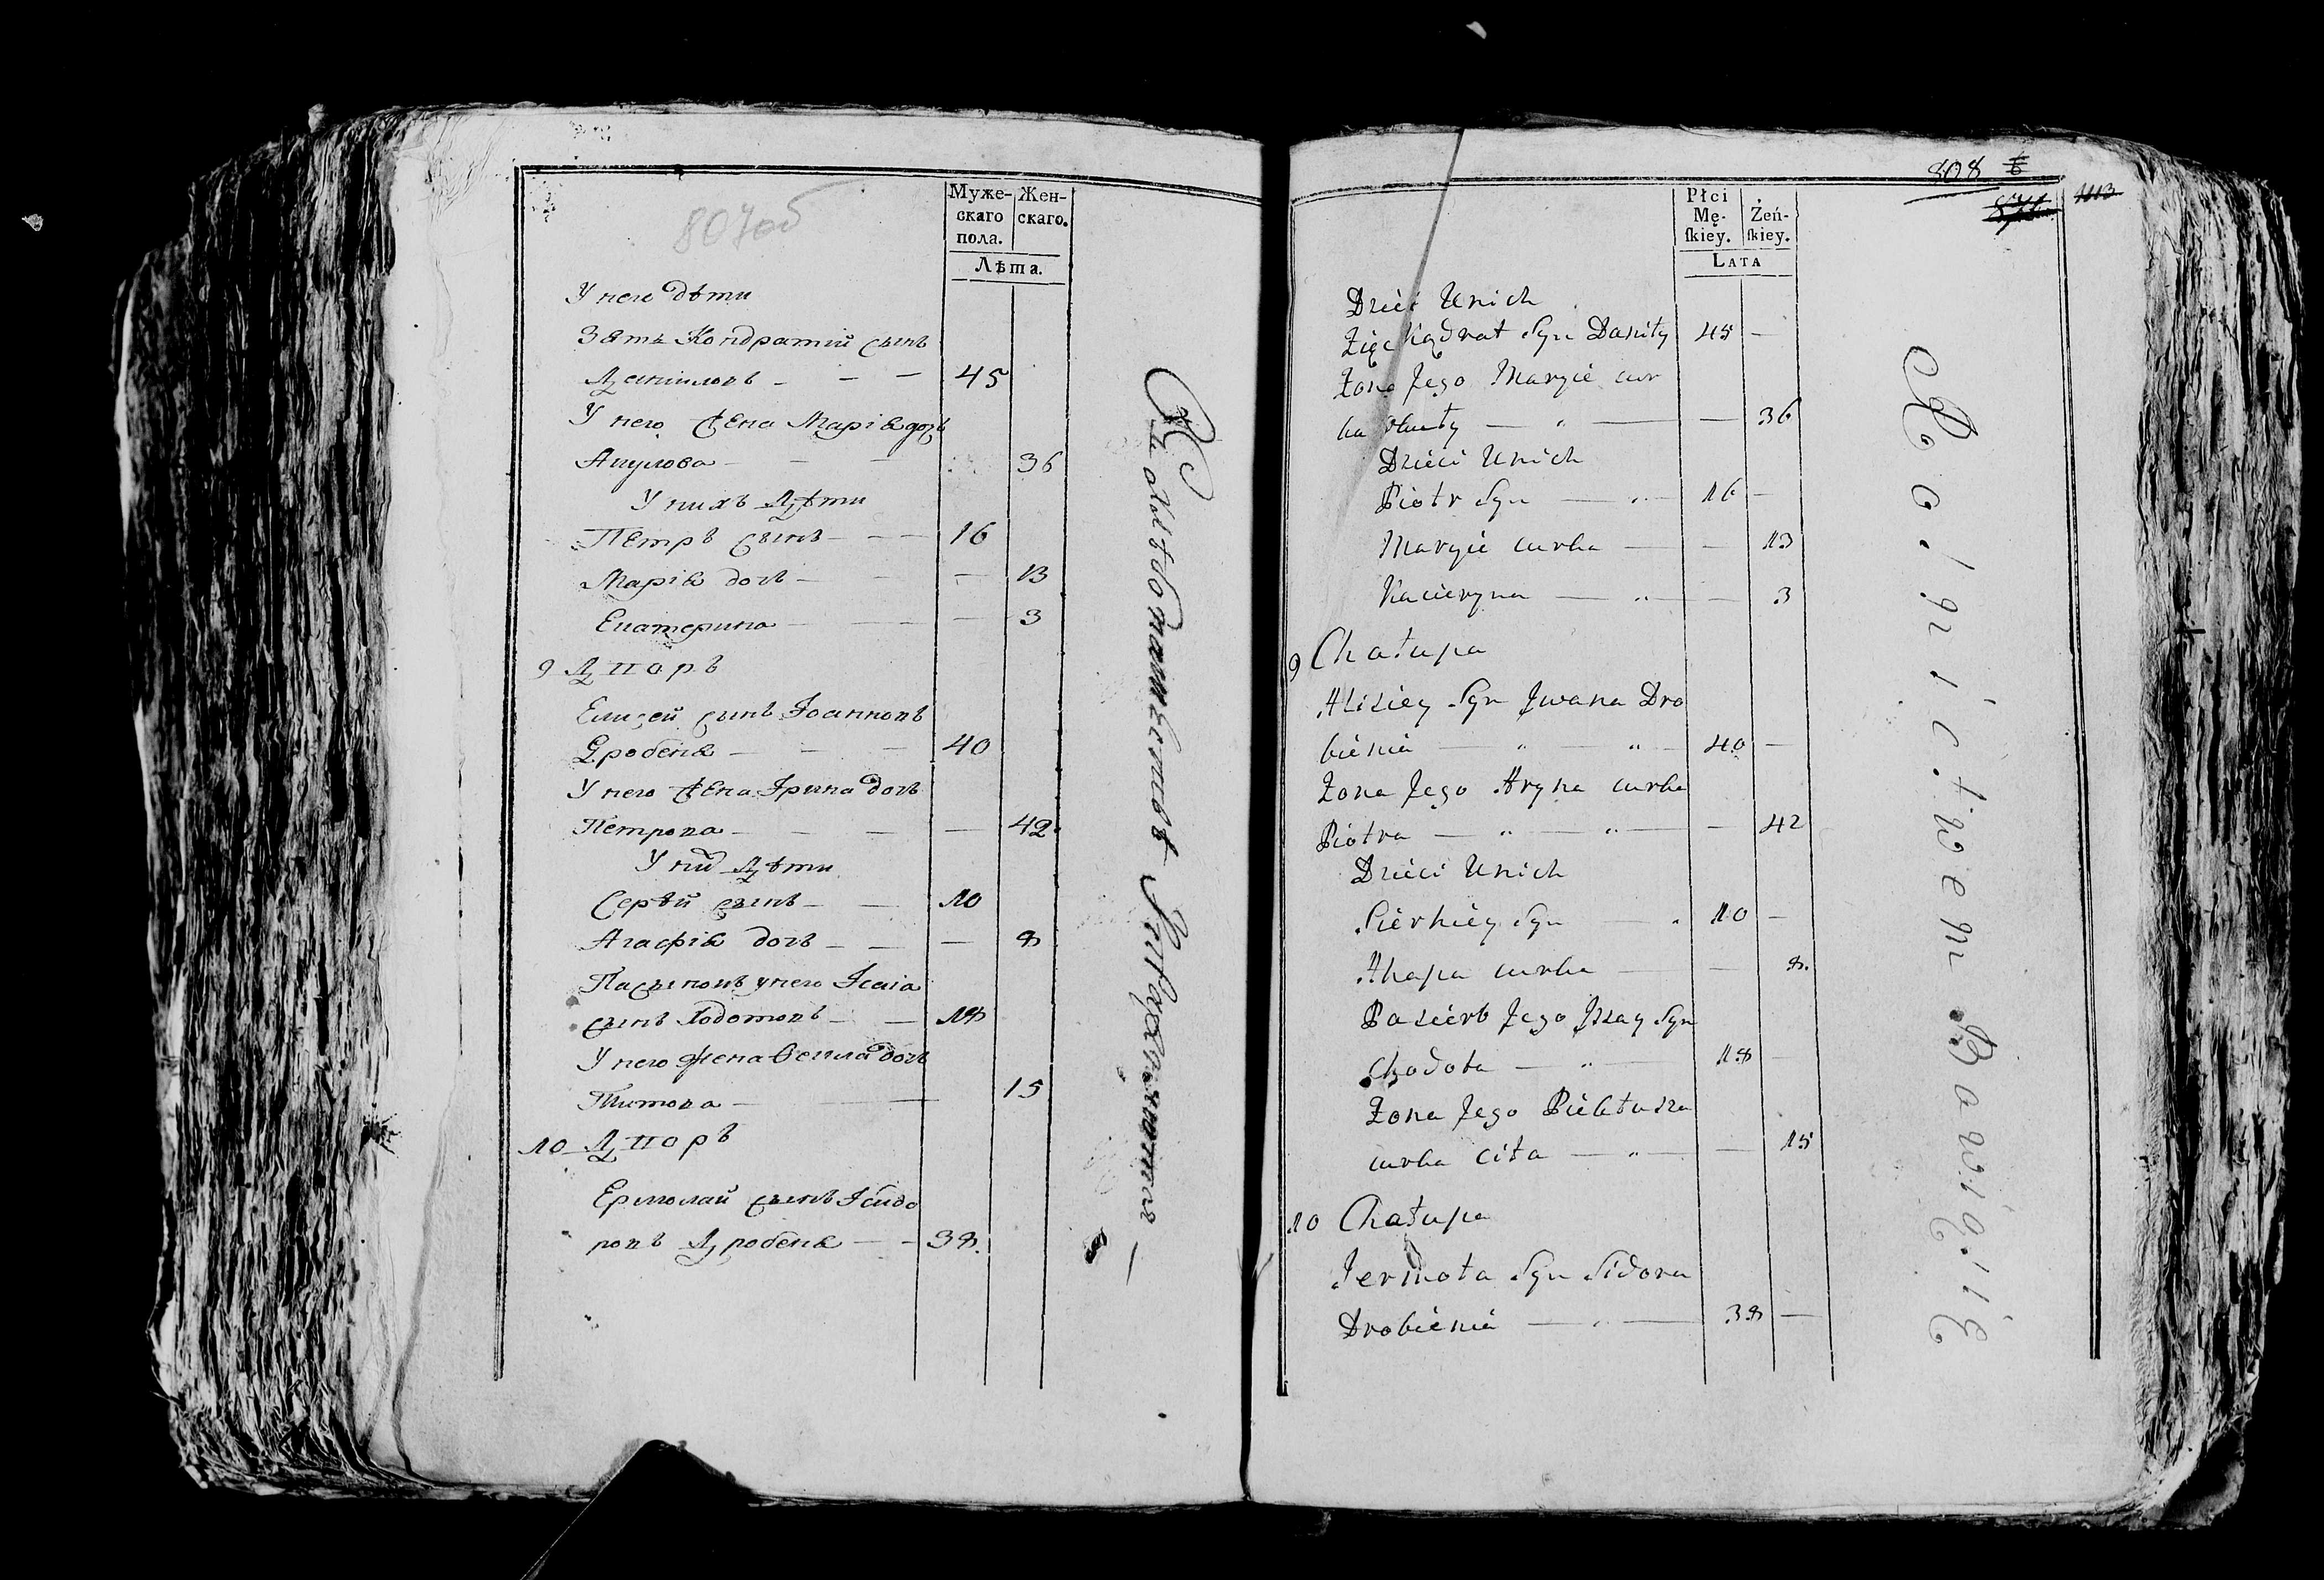 807об
Муже- Жен-
скаго скаго.
пола.
Лѣта.
У него дѣти
Зять Кондратій сынъ
Даниловъ - - - 45
У него жена Марія дочь
Акулова - - 36
У нихъ Дѣти
Петръ сынъ - - - 16
Марія дочь - - - 13
Екатерина - - - 3
9 Дворъ
Елисей сынъ Іоанновъ
Дробеня - - - 40
У него жена Ирина дочь
Петрова - - - - 42
У ни Дѣти
Сергѣй сынъ - - 10
Агафія дочь - - - 8
Пасынокъ у него Исаія
сынъ Ходотовъ - - 18
У него жена дочь
Титова - - 15
10 Дворъ
Ермолай сынъ Исидо
ровъ Дробеня - - 38.
808
1113
Płci
Mę- Żeń-
ſkiey. ſkiey.
LATA
Dzieci Unich
Zięć Kądrat Syn Daniły 45 —
Żona Jego Maryie cur
ka — " — — 36
Dzieci Unich
Piotr Syn — " — 16 —
Maryie curka — — 13
Kacieryna — " — — 3
9 Chałupa
Alisiey Syn Jwana Dro
bienie — " — " — 40 —
Żona Jego Aryna curka
Piotra — " — " — — 42
Dzieci Unich
Sierhiey Syn — " 10 —
Ahapa curka — — 8.
Pasierb Jego Jsay Syn
Chodota — " — 18 —
Żona Jego
curka Cita — " — — 15
10 Chałupa
Jermoła Syn Sidora
Drobienie — " — 38 —